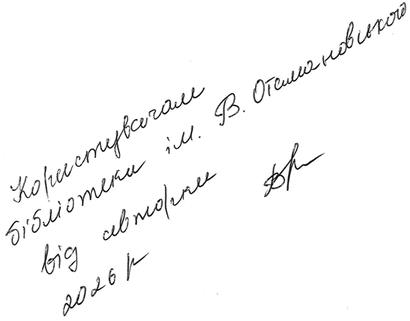 Користувачам
бібліотеки ім. В. Отамановського
від авторки
2026 р